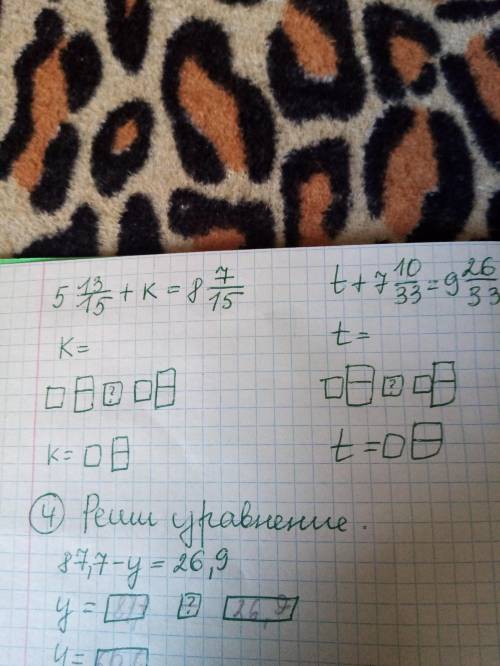 5 13/15 + к = 8 7/15
t + 7 10/33 = 9 26/33
к =
t =
?
?
к =
t =
4 Реши уравнение.
87,7 - y = 26,9
y = 87,7 ? 26,9
y =